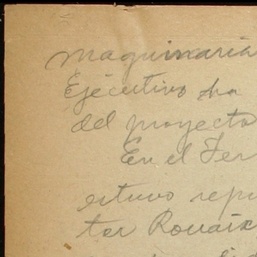 maquinaria
Ejecutivo ha
del proyecto
En el Ter
estuvo repr
tor Rouaix